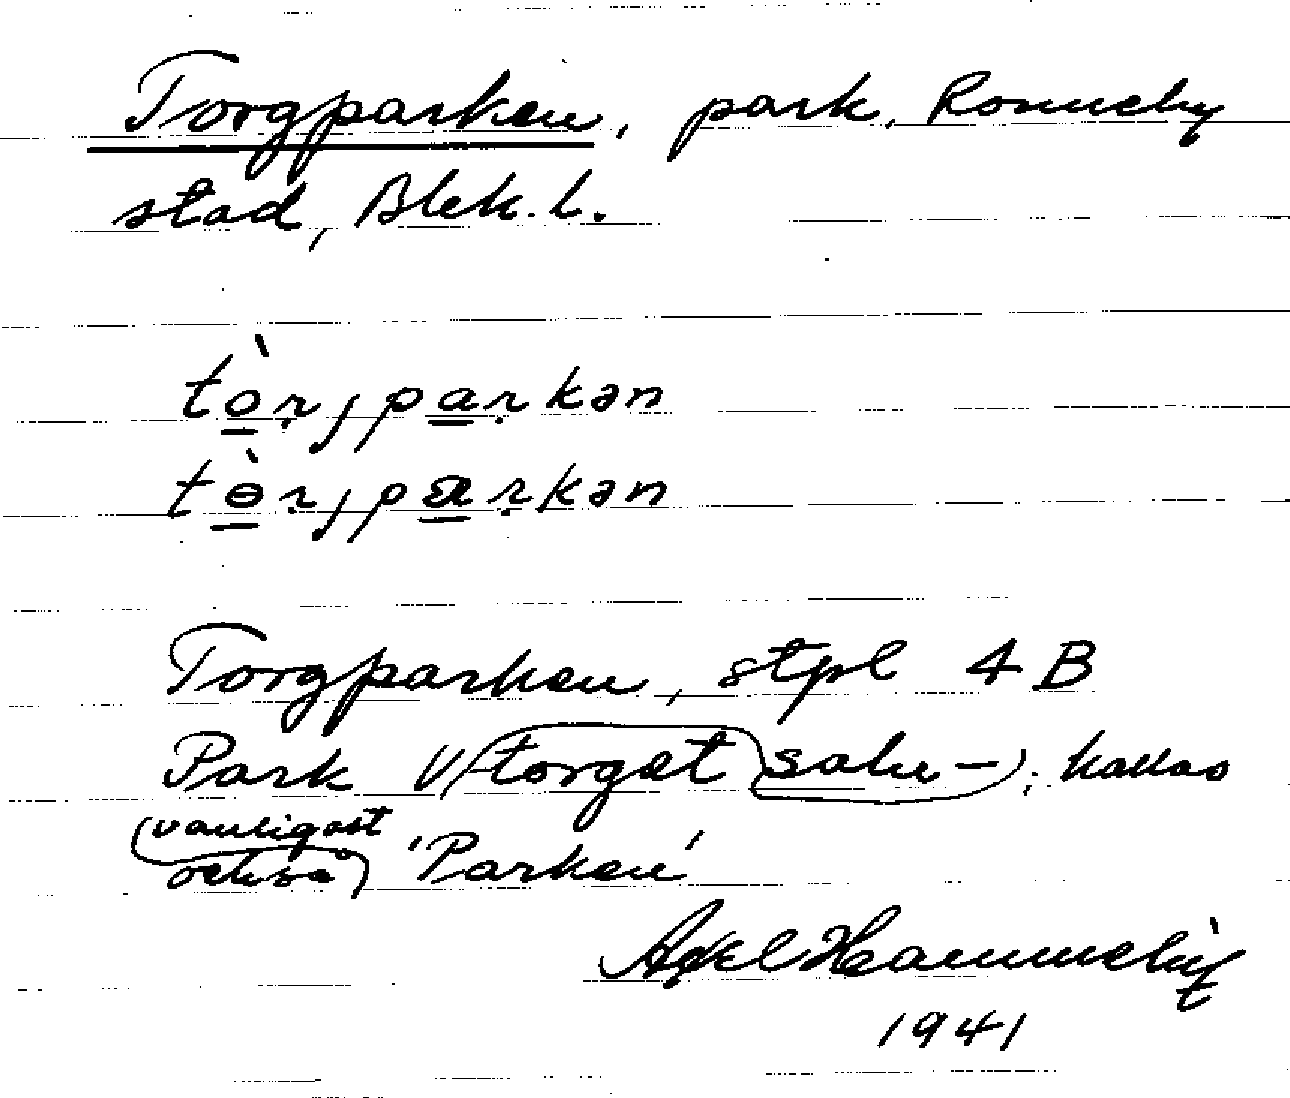 Torgparken, park, Ronneby
stad, Blek. l.
tòrjparkən
tɵ̀rjpαrkən
Torgparken, stpl 4 B
Park v torget, kallas
vanligast
också 'Parken'
Axel Hammelin
1941